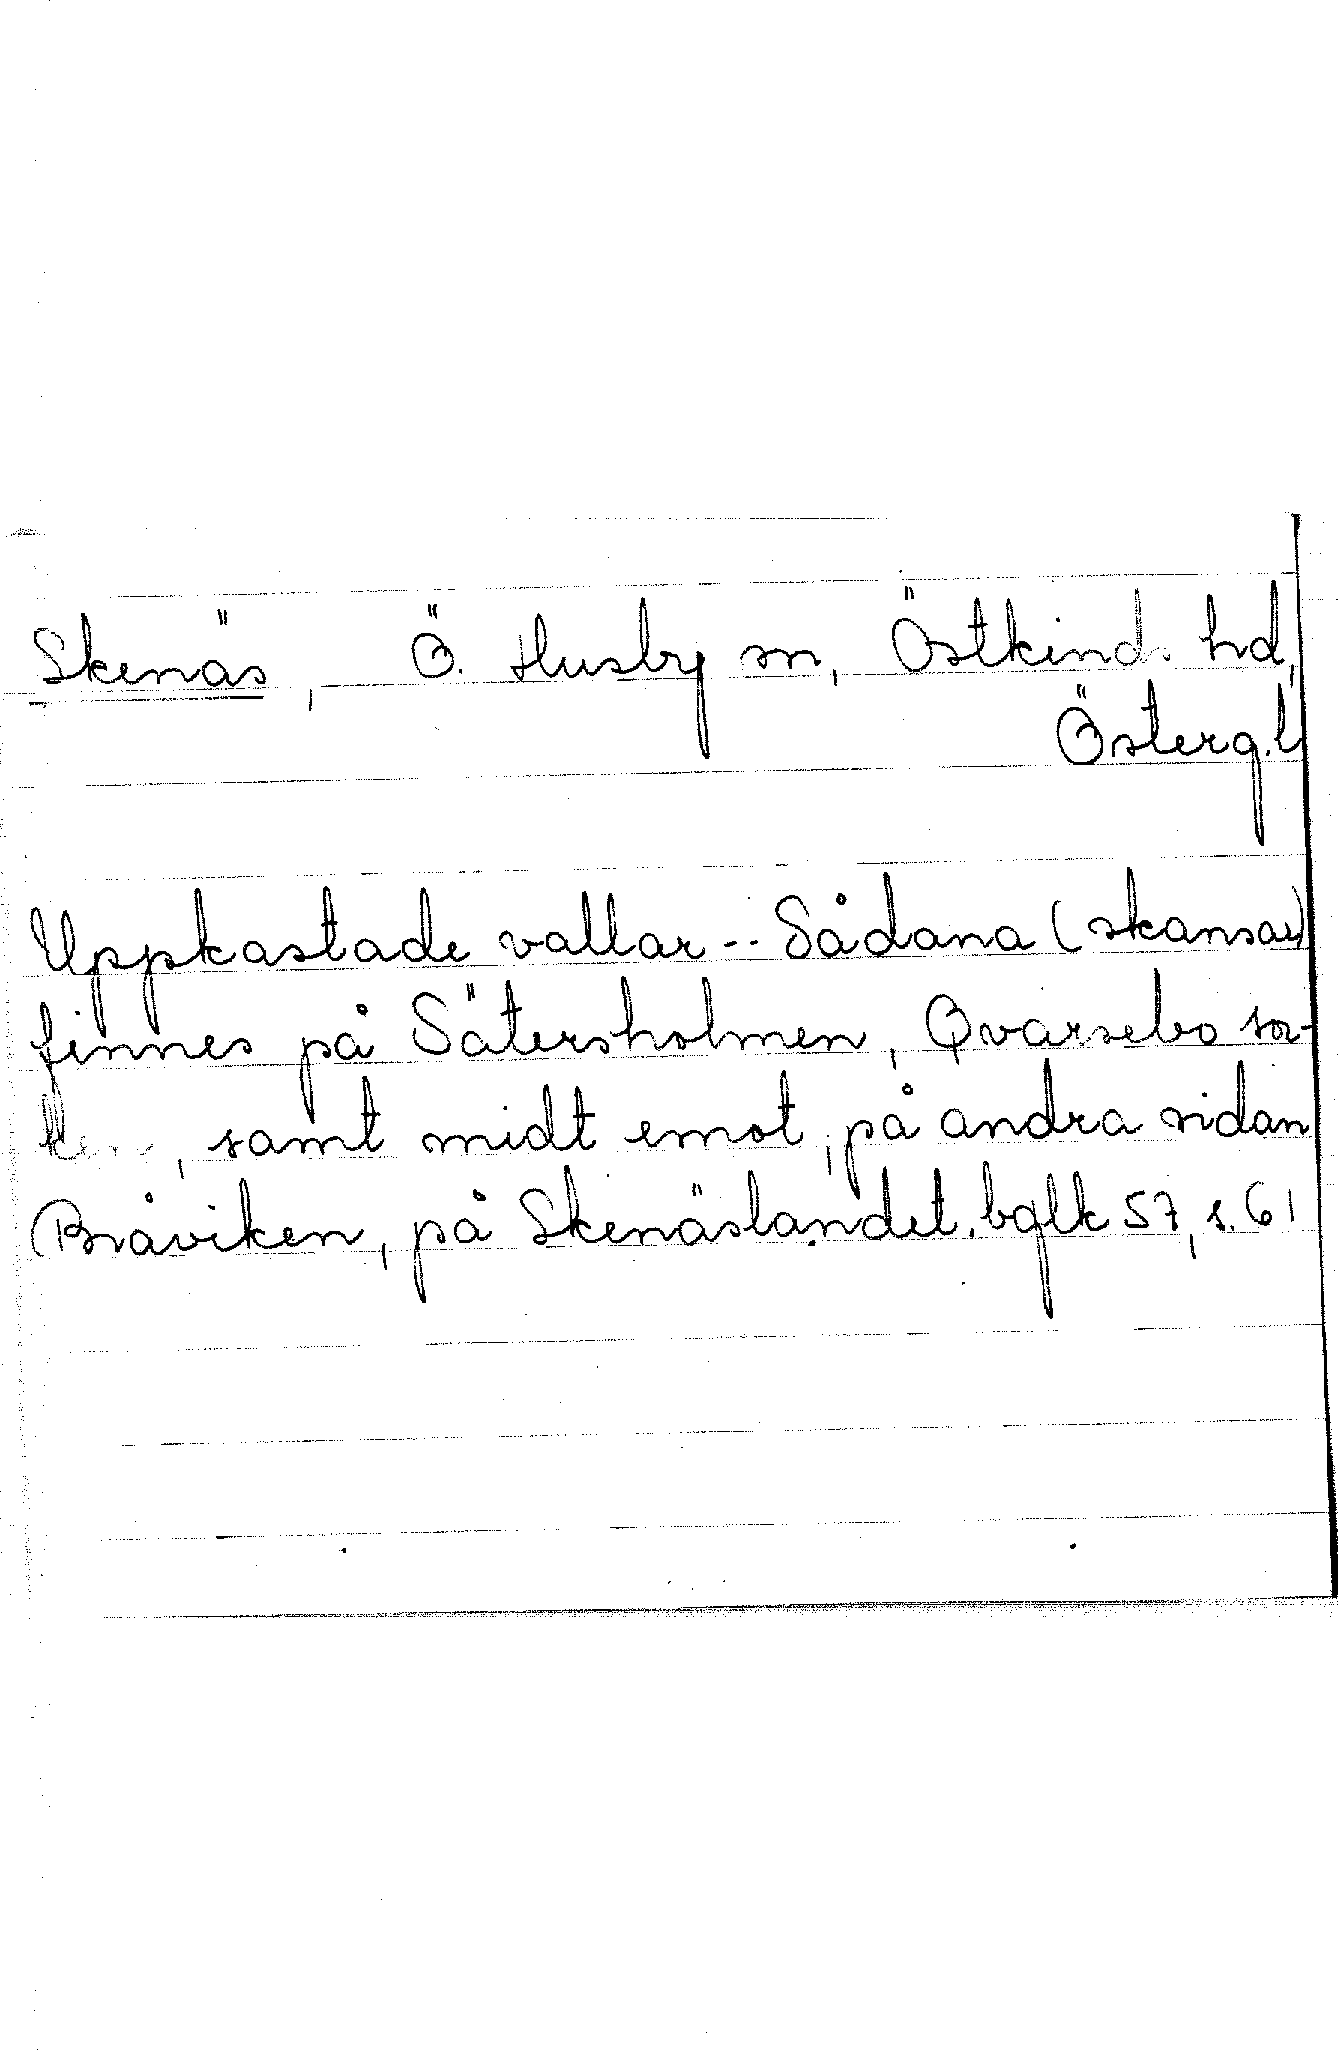 Skenäs, Ö. Husby sn, Östkinds hd,
Österg.l
Uppkastade vallar -- Sådana (skansar)
finnes på Sätersholmen, Qvarsebo soc-
ken, samt midt emot, på andra sidan
Bråviken, på Skenäslandet. bglk 57, s. 61